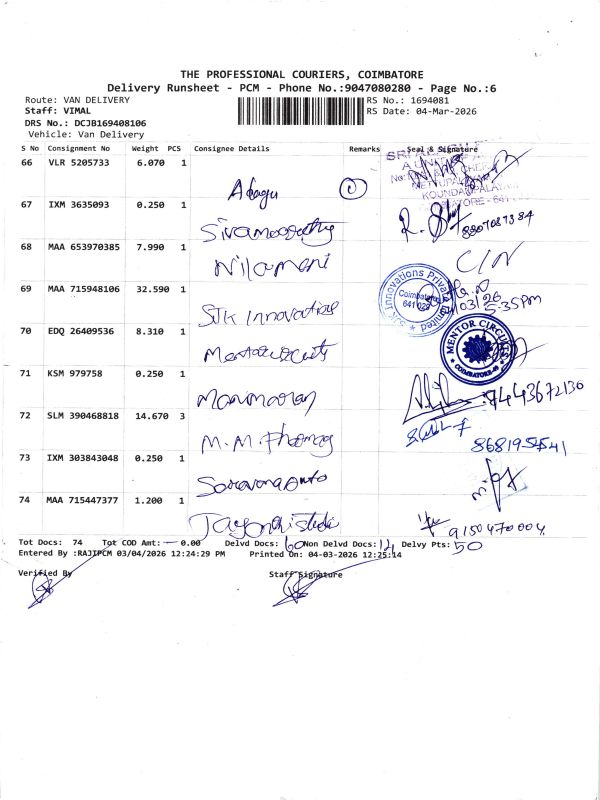 THE PROFESSIONAL COURIERS, COIMBATORE
Delivery Runsheet - PCM - Phone No.:9047080280 - Page No.:6
Route: VAN DELIVERY
RS No.: 1694081
Staff: VIMAL
RS Date: 04-Mar-2026
DRS No.: DCJB169408106
Vehicle: Van Delivery
S No Consignment No Weight PCS Consignee Details Remarks Seal & Signature
66 VLR 5205733 6.070 1
67 IXM 3635093 0.250 1
8807087384
68 MAA 653970385 7.990 1 Nilamani
69 MAA 715948106 32.590 1 SJK Innovative
SJK Innovations Private Limited
Coimbatore
5.35pm
70 EDQ 26409536 8.310 1
MENTOR CIRCUITS
COIMBATORE-49
71 KSM 979758 0.250 1 Manimaran
7443672130
72 SLM 390468818 14.670 3
73 IXM 303843048 0.250 1 Saravana Auto
74 MAA 715447377 1.200 1
9150470004
Tot Docs: 74 Tot COD Amt: 0.00 Delvd Docs: 60 Non Delvd Docs: 14 Delvy Pts: 50
Entered By :RAJIPCM 03/04/2026 12:24:29 PM Printed On: 04-03-2026 12:25:14
Verified By
Staff Signature